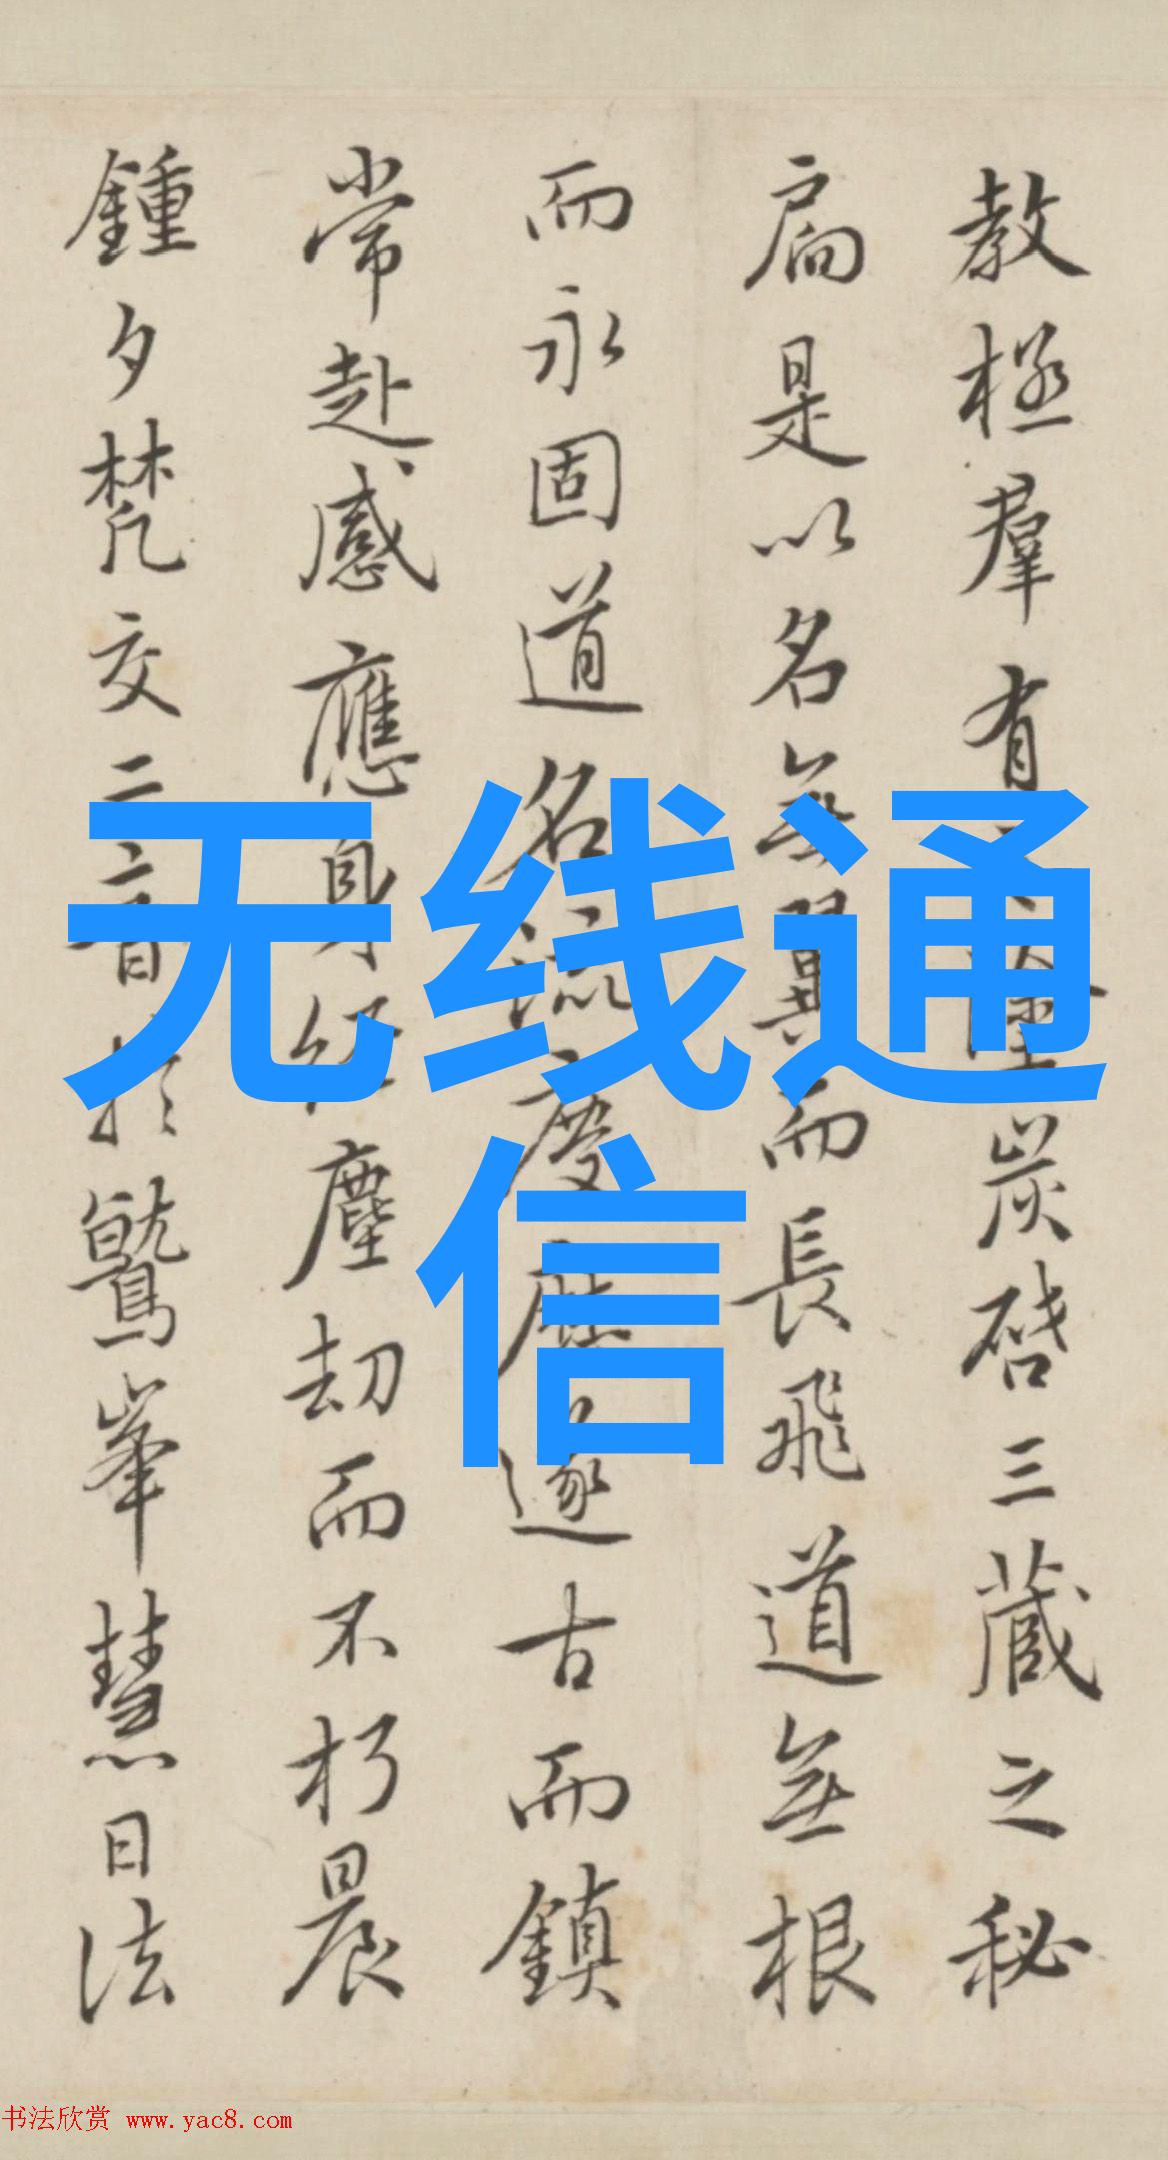 教極羣有之塗炭啓三藏之秘
扃是以名無翼而長飛道無根
而永固道名流慶歷遂古而鎮
常赴感應身經塵劫而不朽晨
鍾夕梵交二音於鷲峯慧日法
无线通
信
书法欣赏 www.yac8.com